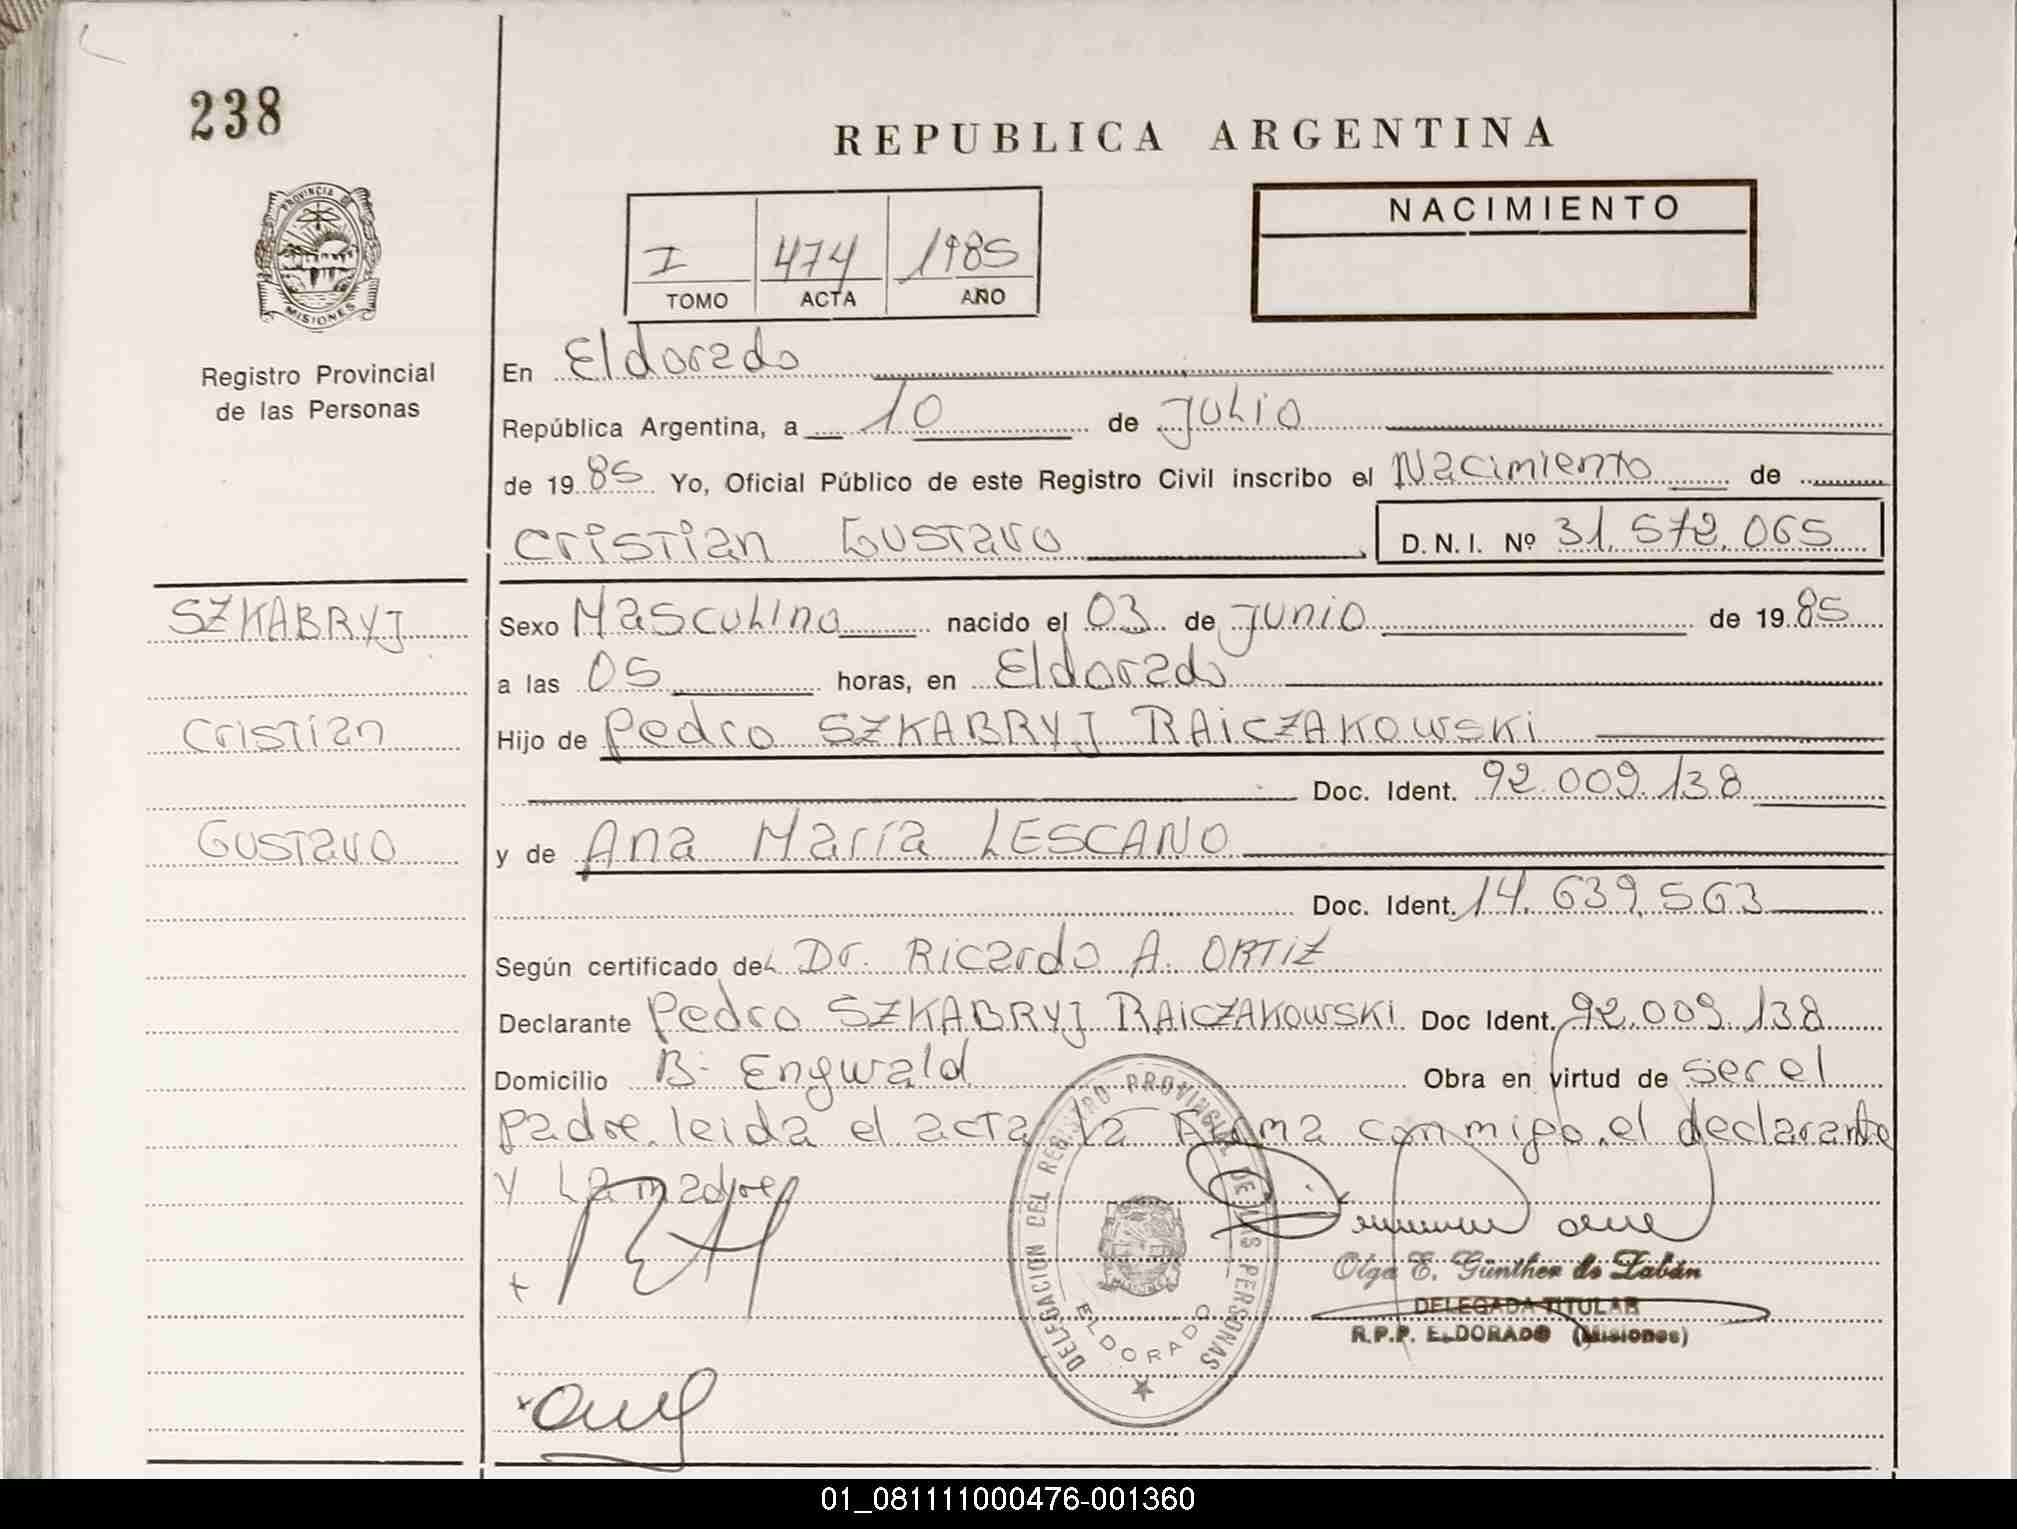 238
REPUBLICA ARGENTINA
NACIMIENTO
PROVINCIA DE
MISIONES
I 474 1985
TOMO ACTA AÑO
Registro Provincial
de las Personas
En Eldorado
República Argentina, a 10 de Julio
de 1985 Yo, Oficial Público de este Registro Civil inscribo el Nacimiento de
Cristian Gustavo D.N.I. Nº 31.572.065
SZKABRYJ
Cristian
Gustavo
Sexo Masculino nacido el 03 de Junio de 1985
a las 05 horas, en Eldorado
Hijo de Pedro SZKABRYJ RAICZAKOWSKI
Doc. Ident. 92.009.138
y de Ana María LESCANO
Doc. Ident. 14.639.563
Según certificado del Dr. Ricardo A. ORTIZ
Declarante Pedro SZKABRYJ RAICZAKOWSKI Doc Ident. 92.009.138
Domicilio B· Engwald Obra en virtud de ser el
padre. leida el acta la firma conmigo. el declarante
y La madre
DELEGACION DEL REGISTRO PROVINCIAL DE LAS PERSONAS
ELDORADO
Olga E. Günther de Zabán
DELEGADA TITULAR
R.P.P. ELDORADO (Misiones)
01_081111000476-001360